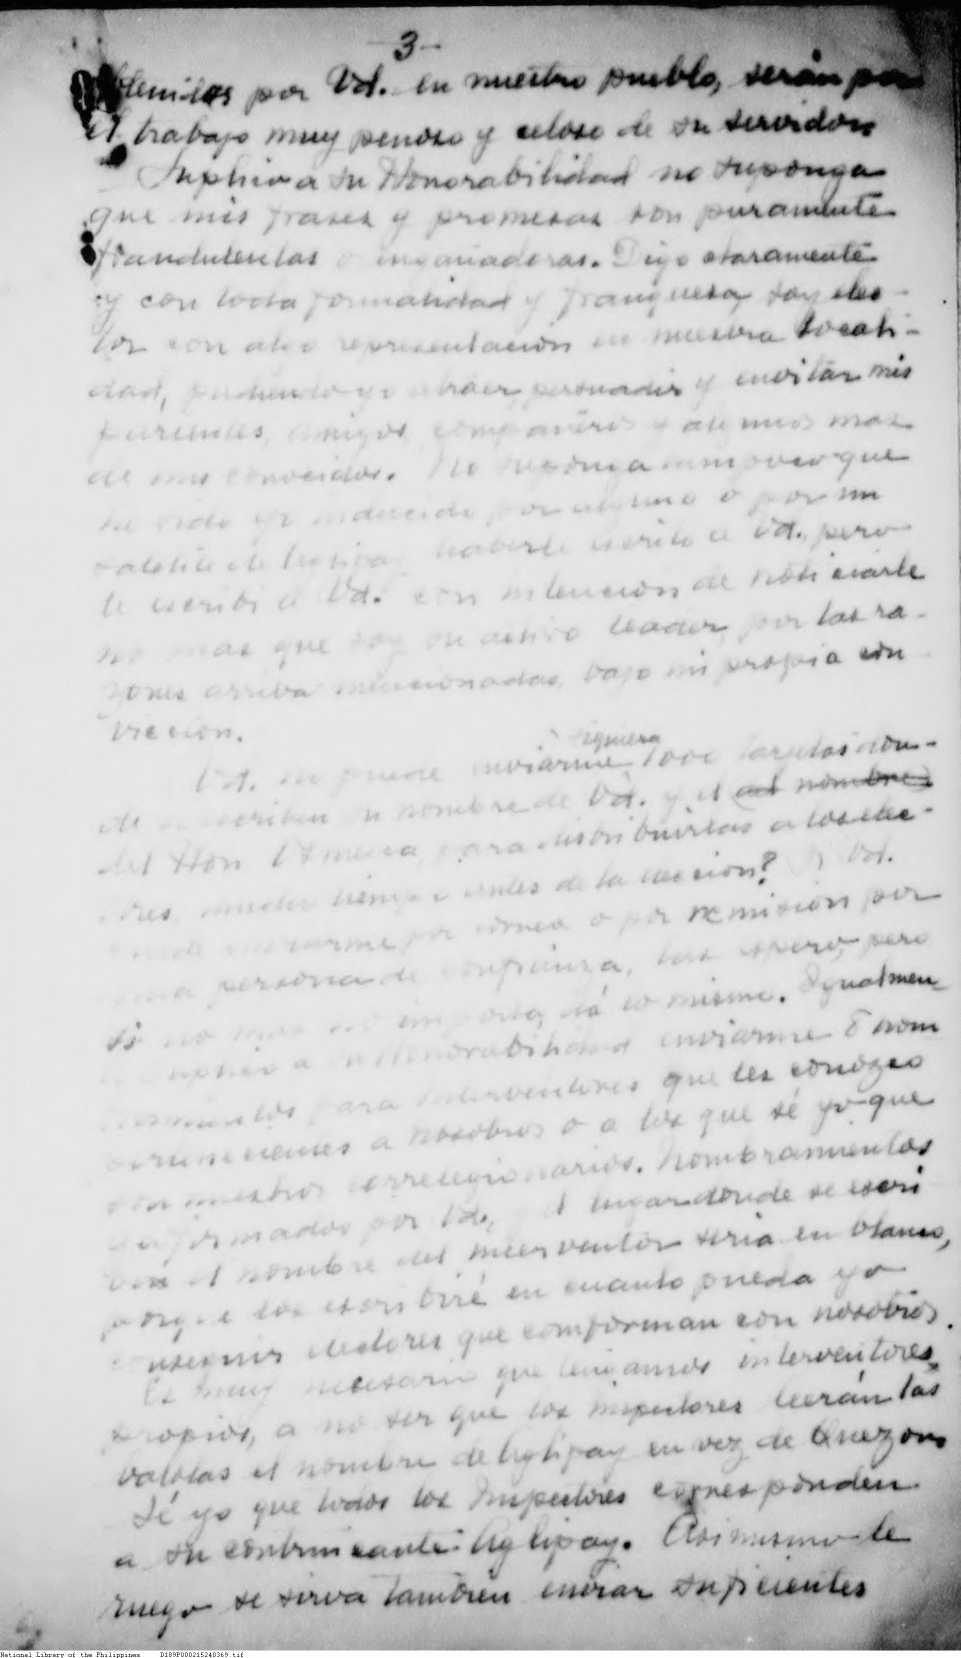 -3-
obtenidos por Vd. en nuestro pueblo, serán por
el trabajo muy penoso y celoso de su servidor.
Suplico a su Honorabilidad no suponga
que mis frases y promesas son puramente
fraudulentas o engañadoras. Digo claramente
y con toda formalidad y franqueza, soy elec-
tor con algo representación en nuestra locali-
dad, pudiendo yo atraer, persuadir y invitar mis
parientes, amigos, compañeros y algunos mas
de mis conocidos. No suponga tampoco que
he sido yo inducido por alguno o por un
satélite de haberle escrito a Vd., pero
le escribí a Vd. con intención de noticiarle
no mas que soy un activo leader, por las ra-
zones arriba mencionadas, bajo mi propia con
vicción.
siquiera
Vd. no puede enviarme 1000 tarjetas don-
de se escriben su nombre de Vd. y el del nombre
del Hon. para distribuirlas a los elec-
tores, mucho tiempo antes de la elección? Si Vd.
puede enviarme por correo o por remisión por
una persona de confianza, las espero, pero
si no mas no importa, dá lo mismo. Igualmen-
te suplico a su Honorabilidad enviarme 8 nom
bramientos para interventores que les conozco
a nosotros o a los que sé yo que
son nuestros correlegionarios. Nombramientos
firmados por Vd., y el lugar donde se escri
birá el nombre del interventor seria en blanco,
porque los escribiré en cuanto pueda yo
conseguir electores que comforman con nosotros.
Es muy necesario que tengamos interventores
propios, a no ser que los inspectores leerán las
balotas el nombre de Aglipay en vez de Quezon.
Sé yo que todos los Inspectores corresponden
a su contrincante Aglipay. Asimismo le
ruego se sirva también enviar suficientes
National Library of the Philippines D189P000215240369.tif